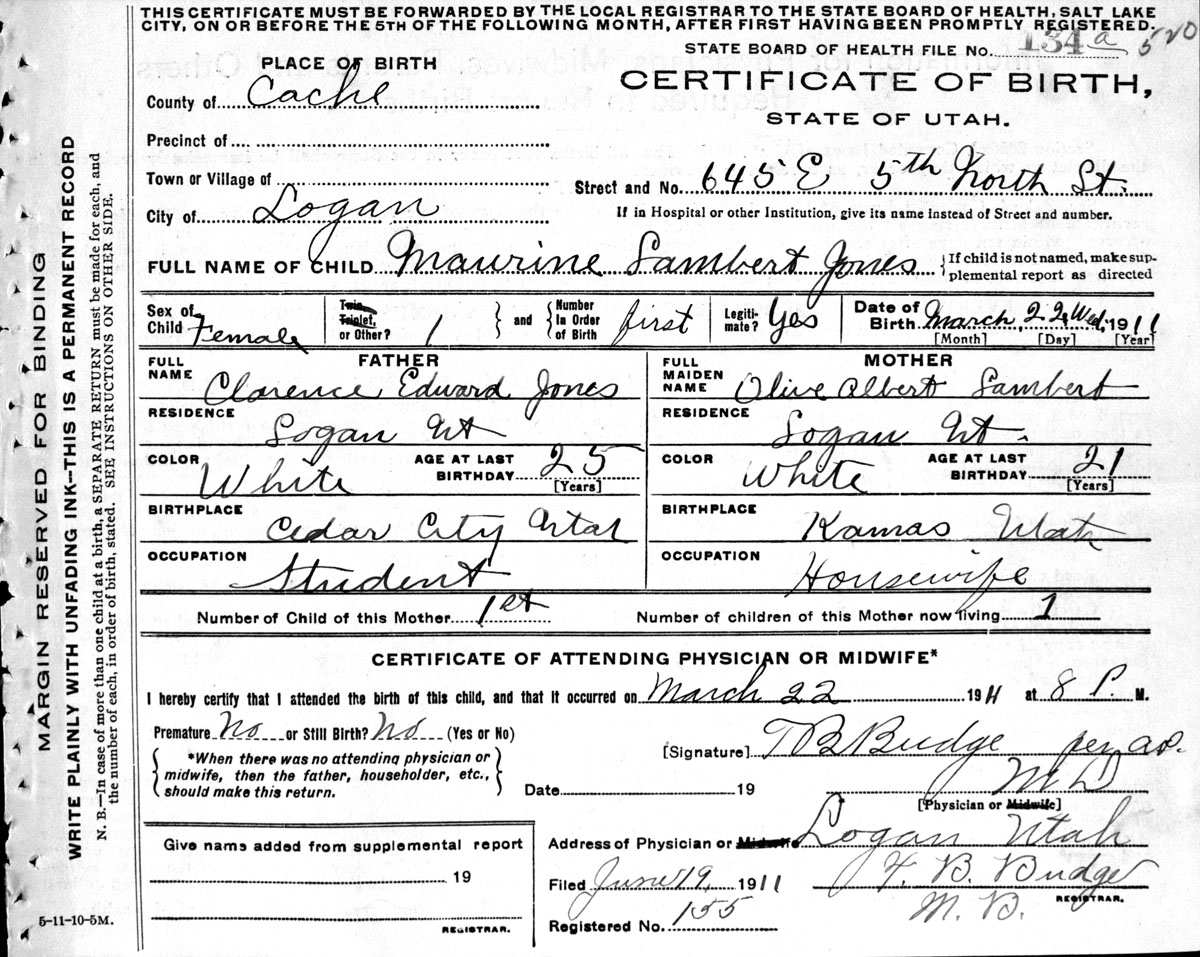 THIS CERTIFICATE MUST BE FORWARDED BY THE LOCAL REGISTRAR TO THE STATE BOARD OF HEALTH, SALT LAKE
CITY, ON OR BEFORE THE 5TH OF THE FOLLOWING MONTH, AFTER FIRST HAVING BEEN PROMPTLY REGISTERED.
STATE BOARD OF HEALTH FILE No. 134 a 520
PLACE OF BIRTH
CERTIFICATE OF BIRTH,
County of Cache
STATE OF UTAH.
Precinct of
Town or Village of
Street and No. 645 E 5th North St.
City of Logan
If in Hospital or other Institution, give its name instead of Street and number.
FULL NAME OF CHILD Maurine Lambert Jones
If child is not named, make sup-
plemental report as directed
Sex of Child Female
Twin, Triplet, or Other? 1
and Number In Order of Birth first
Legiti-mate? Yes
Date of Birth March, 22 Wed, 1911
[Month] [Day] [Year]
FATHER
FULL NAME Clarence Edward Jones
RESIDENCE Logan Ut
COLOR White AGE AT LAST BIRTHDAY 25
[Years]
BIRTHPLACE Cedar City Utah
OCCUPATION Student
MOTHER
FULL MAIDEN NAME Olive Albert Lambert
RESIDENCE Logan Ut.
COLOR White AGE AT LAST BIRTHDAY 21
[Years]
BIRTHPLACE Kamas Utah
OCCUPATION Housewife
Number of Child of this Mother 1st Number of children of this Mother now living 1
CERTIFICATE OF ATTENDING PHYSICIAN OR MIDWIFE*
I hereby certify that I attended the birth of this child, and that it occurred on March 22 1911 at 8 P. M.
Premature No or Still Birth? No (Yes or No)
*When there was no attending physician or
midwife, then the father, householder, etc.,
should make this return.
[Signature] T B Budge per
M D
Date 19
[Physician or Midwife]
Address of Physician or Midwife Logan Utah
Give name added from supplemental report
19
REGISTRAR.
Filed June 19, 1911 T. B. Budge
M. D.
REGISTRAR.
Registered No. 155
5-11-10-5M.
MARGIN RESERVED FOR BINDING
WRITE PLAINLY WITH UNFADING INK—THIS IS A PERMANENT RECORD
N. B.—In case of more than one child at a birth, a SEPARATE RETURN must be made for each, and
the number of each, in order of birth, stated. SEE INSTRUCTIONS ON OTHER SIDE.